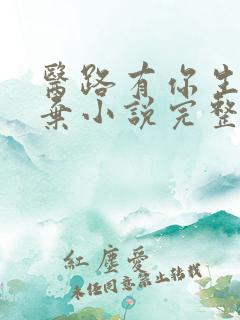 醫路有你生
棄小說完整
紅塵愛
未经同意禁止转载